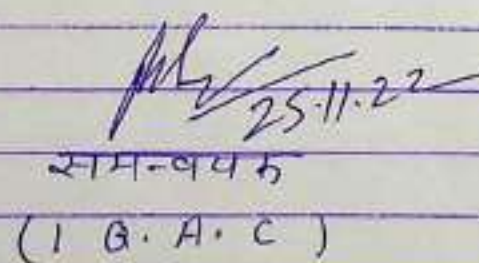 25.11.22
समन्वयक
(I Q. A. C)